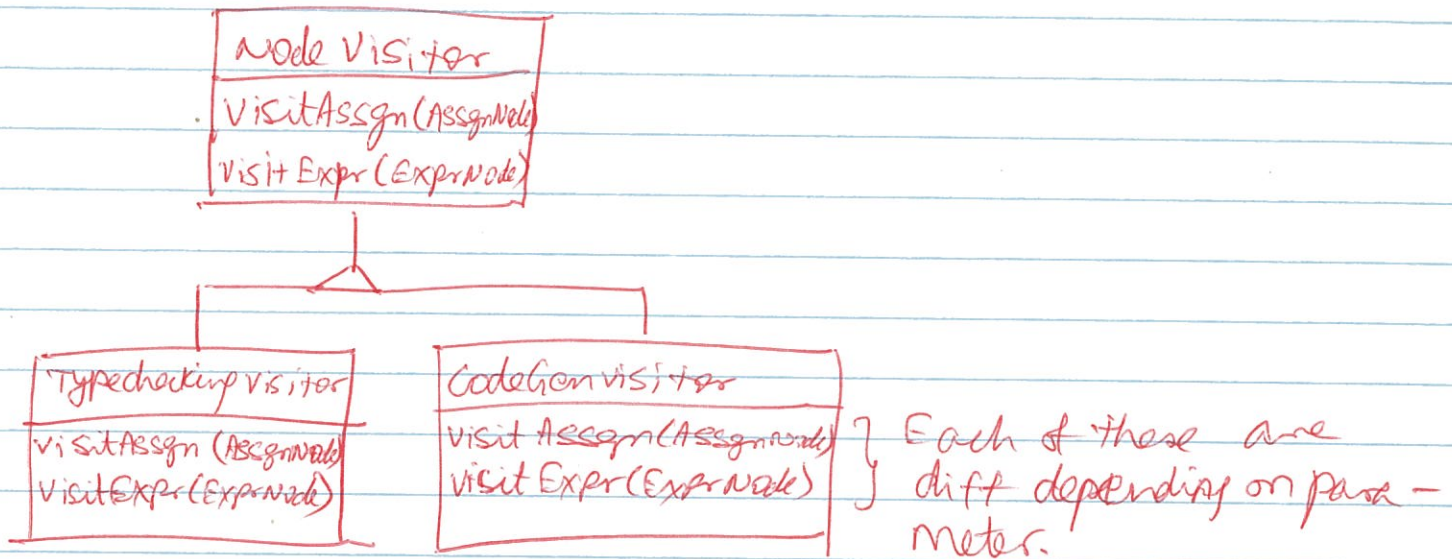 Node Visitor
VisitAssgn(AssgnNode)
Visit Expr(ExprNode)
Typechecking visitor
visitAssgn (AssgnNode)
VisitExpr(ExprNode)
CodeGenvisitor
visit Assgn(AssgnNode)
visit Expr(ExprNode)
} Each of these are
diff depending on para-
meter.